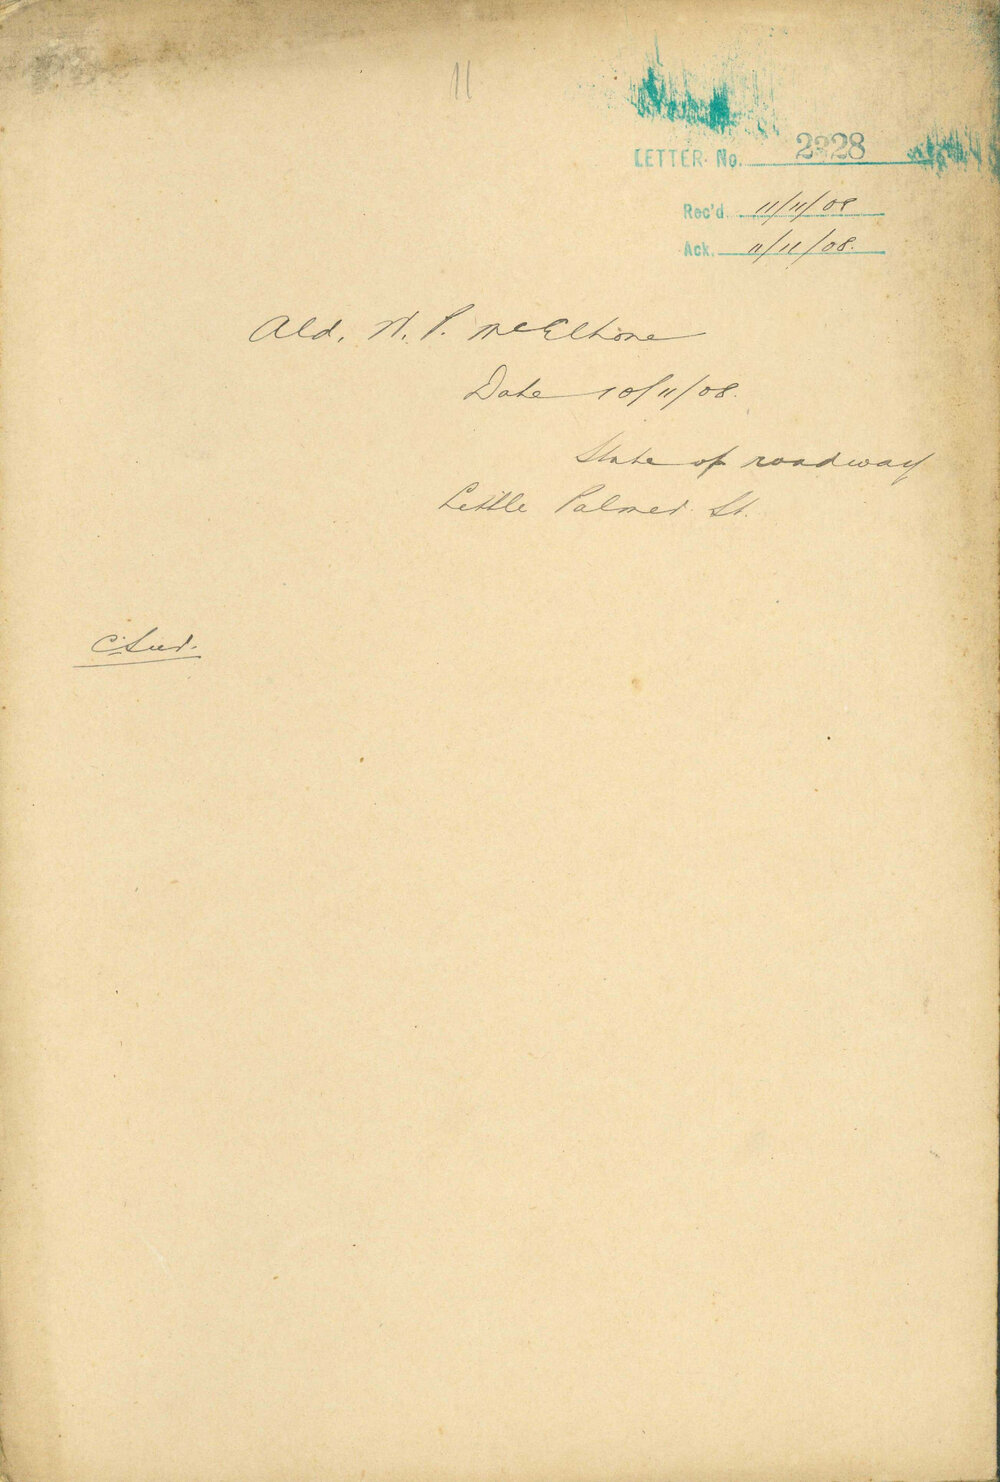 11
LETTER No. 2328
Rec'd. 11/11/08
Ack. 11/11/08.
Ald. W. P. McElhone
Date 10/11/08.
State of roadway
Little Palmer St.